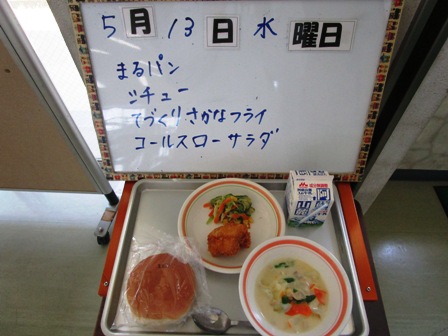 5月13日水曜日
まるパン
シチュー
てづくりさかなフライ
コールスローサラダ